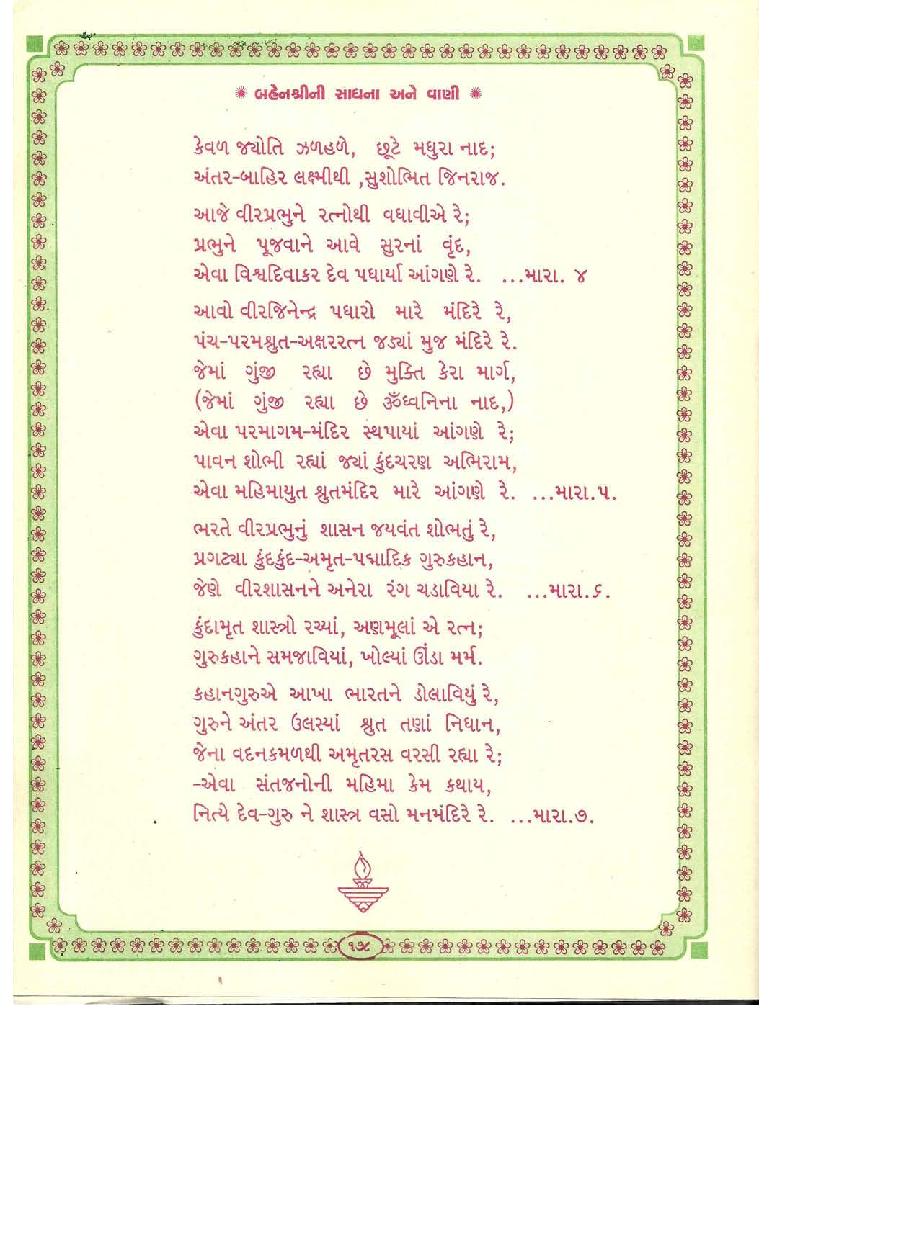 ✺ બહેનશ્રીની સાધના અને વાણી ✺
કેવળ જ્યોતિ ઝળહળે, છૂટે મધુરા નાદ;
અંતર-બાહિર લક્ષ્મીથી ,સુશોભિત જિનરાજ.
આજે વીરપ્રભુને રત્નોથી વધાવીએ રે;
પ્રભુને પૂજવાને આવે સુરનાં વૃંદ,
એવા વિશ્વદિવાકર દેવ પધાર્યા આંગણે રે. ...મારા. ૪
આવો વીરજિનેન્દ્ર પધારો મારે મંદિરે રે,
પંચ-પરમશ્રુત-અક્ષરરત્ન જડ્યાં મુજ મંદિરે રે.
જેમાં ગુંજી રહ્યા છે મુક્તિ કેરા માર્ગ,
(જેમાં ગુંજી રહ્યા છે ૐધ્વનિના નાદ,)
એવા પરમાગમ-મંદિર સ્થપાયાં આંગણે રે;
પાવન શોભી રહ્યાં જ્યાં કુંદચરણ અભિરામ,
એવા મહિમાયુત શ્રુતમંદિર મારે આંગણે રે. ...મારા.૫.
ભરતે વીરપ્રભુનું શાસન જયવંત શોભતું રે,
પ્રગટ્યા કુંદકુંદ-અમૃત-પદ્માદિક ગુરુકહાન,
જેણે વીરશાસનને અનેરા રંગ ચડાવિયા રે. ...મારા.૬.
કુંદામૃત શાસ્ત્રો રચ્યાં, અણમૂલાં એ રત્ન;
ગુરુકહાને સમજાવિયાં, ખોલ્યાં ઊંડા મર્મ.
કહાનગુરુએ આખા ભારતને ડોલાવિયું રે,
ગુરુને અંતર ઉલસ્યાં શ્રુત તણાં નિધાન,
જેના વદનકમળથી અમૃતરસ વરસી રહ્યા રે;
-એવા સંતજનોની મહિમા કેમ કથાય,
નિત્યે દેવ-ગુરુ ને શાસ્ત્ર વસો મનમંદિરે રે. ...મારા.૭.
૧૭૮